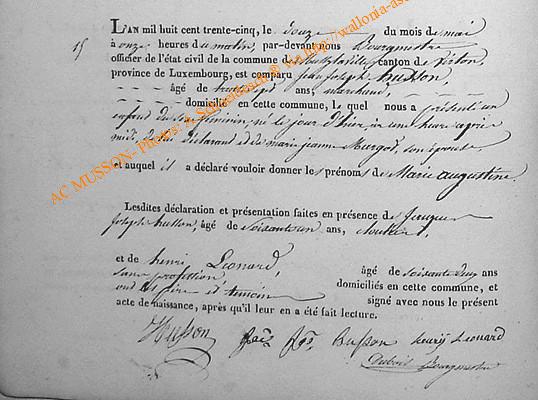 L'AN mil huit cent trente-cinq, le douze du mois de mai
15 à onze heures du matin, par-devant nous Bourgmestre
officier de l'état civil de la commune de canton de Virton,
province de Luxembourg, est comparu jean joseph husson,
âgé de trente sept ans, marchand,
domicilié en cette commune, le quel nous a présenté un
enfant du sexe féminin, né le jour d'hier, à une heure après
midi, de lui déclarant et de marie jeanne Murgot, son épouse
et auquel il a déclaré vouloir donner les prénoms de Marie augustine.
Lesdites déclaration et présentation faites en présence de
joseph husson, âgé de soixante un ans,
et de henri Léonard, âgé de soixante ans
sans profession domiciliés en cette commune, et
ont les père et témoins signé avec nous le présent
acte de naissance, après qu'il leur en a été fait lecture.
Husson Husson henry Leonard
Dubois Bourgmestre
AC MUSSON- Photos: via http://wallonia-as